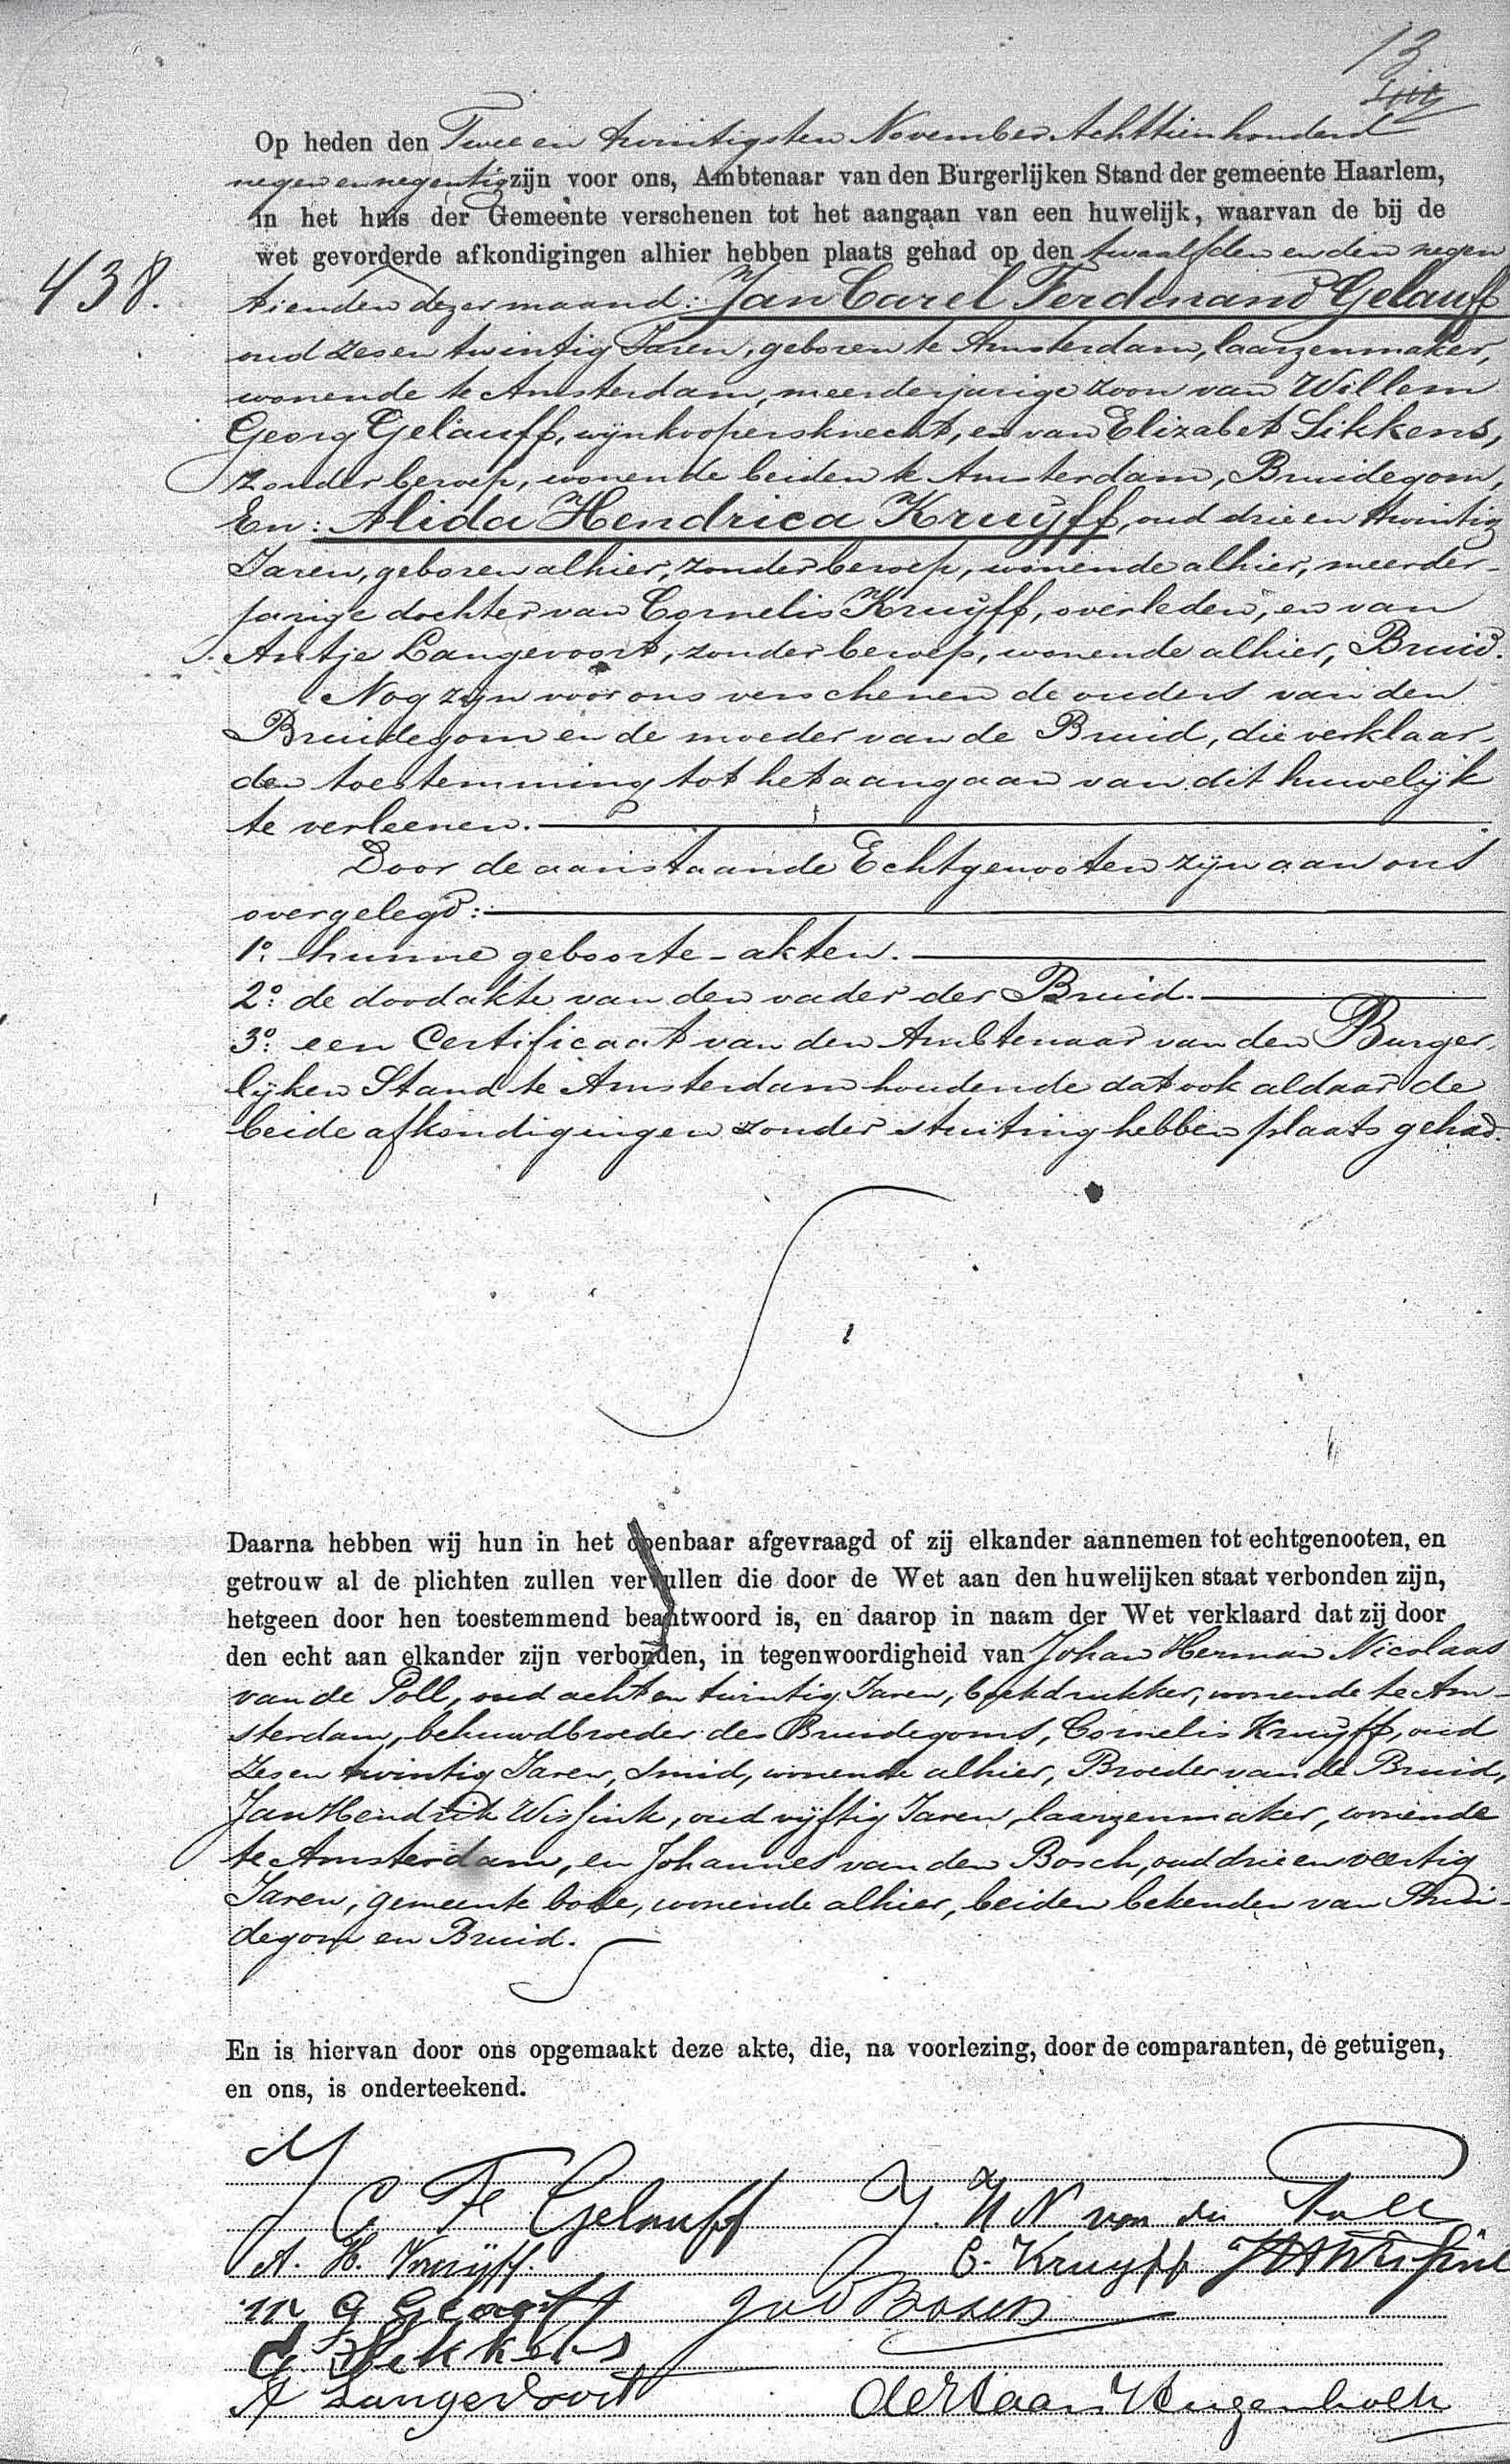 13
Op heden den Twee en twintigsten November Achttienhonderd
negen en negentig zijn voor ons, Ambtenaar van den Burgerlijken Stand der gemeente Haarlem,
in het huis der Gemeente verschenen tot het aangaan van een huwelijk, waarvan de bij de
wet gevorderde afkondigingen alhier hebben plaats gehad op den twaalfden en den negen
438.
tienden dezer maand: Jan Carel Ferdinand Gelauff
oud zes en twintig Jaren, geboren te Amsterdam, laarzenmaker,
wonende te Amsterdam, meerderjarige zoon van Willem
Georg Gelauff, wijnkoopersknecht, en van Elizabet Sikkens,
zonder beroep, wonende beiden te Amsterdam, Bruidegom,
En: Alida Hendrica Kruijff, oud drie en twintig
Jaren, geboren alhier, zonder beroep, wonende alhier, meerder-
jarige dochter van Cornelis Kruijff, overleden, en van
Antje Langevoort, zonder beroep, wonende alhier, Bruid.
Nog zijn voor ons verschenen de ouders van den
Bruidegom en de moeder van de Bruid, die verklaar-
den toestemming tot het aangaan van dit huwelijk
te verleenen.
Door de aanstaande Echtgenooten zijn aan ons
overgelegd:
1o. hunne geboorte-akten.
2o. de doodakte van den vader der Bruid.
3o. een Certificaat van den Ambtenaar van den Burger-
lijken Stand te Amsterdam houdende dat ook aldaar de
beide afkondigingen zonder stuiting hebben plaats gehad.
Daarna hebben wij hun in het openbaar afgevraagd of zij elkander aannemen tot echtgenooten, en
getrouw al de plichten zullen vervullen die door de Wet aan den huwelijken staat verbonden zijn,
hetgeen door hen toestemmend beantwoord is, en daarop in naam der Wet verklaard dat zij door
den echt aan elkander zijn verbonden, in tegenwoordigheid van Johan Herman Nicolaas
van de Poll, oud acht en twintig Jaren, boekdrukker, wonende te Am-
sterdam, behuwdbroeder des Bruidegoms, Cornelis Kruijff, oud
zes en twintig Jaren, smid, wonende alhier, Broeder van de Bruid,
Jan Hendrik Wissink, oud vijftig Jaren, laarzenmaker, wonende
te Amsterdam, en Johannes van den Bosch, oud drie en veertig
Jaren, gemeente bode, wonende alhier, beiden bekenden van Brui-
degom en Bruid.
En is hiervan door ons opgemaakt deze akte, die, na voorlezing, door de comparanten, de getuigen,
en ons, is onderteekend.
J C F Gelauff J. H N van de Poll
A. H. Kruijff. C. Kruijff JH Wissink
Jvd Bosch
Sikkens
A Langevoort de Haan Hugenholtz